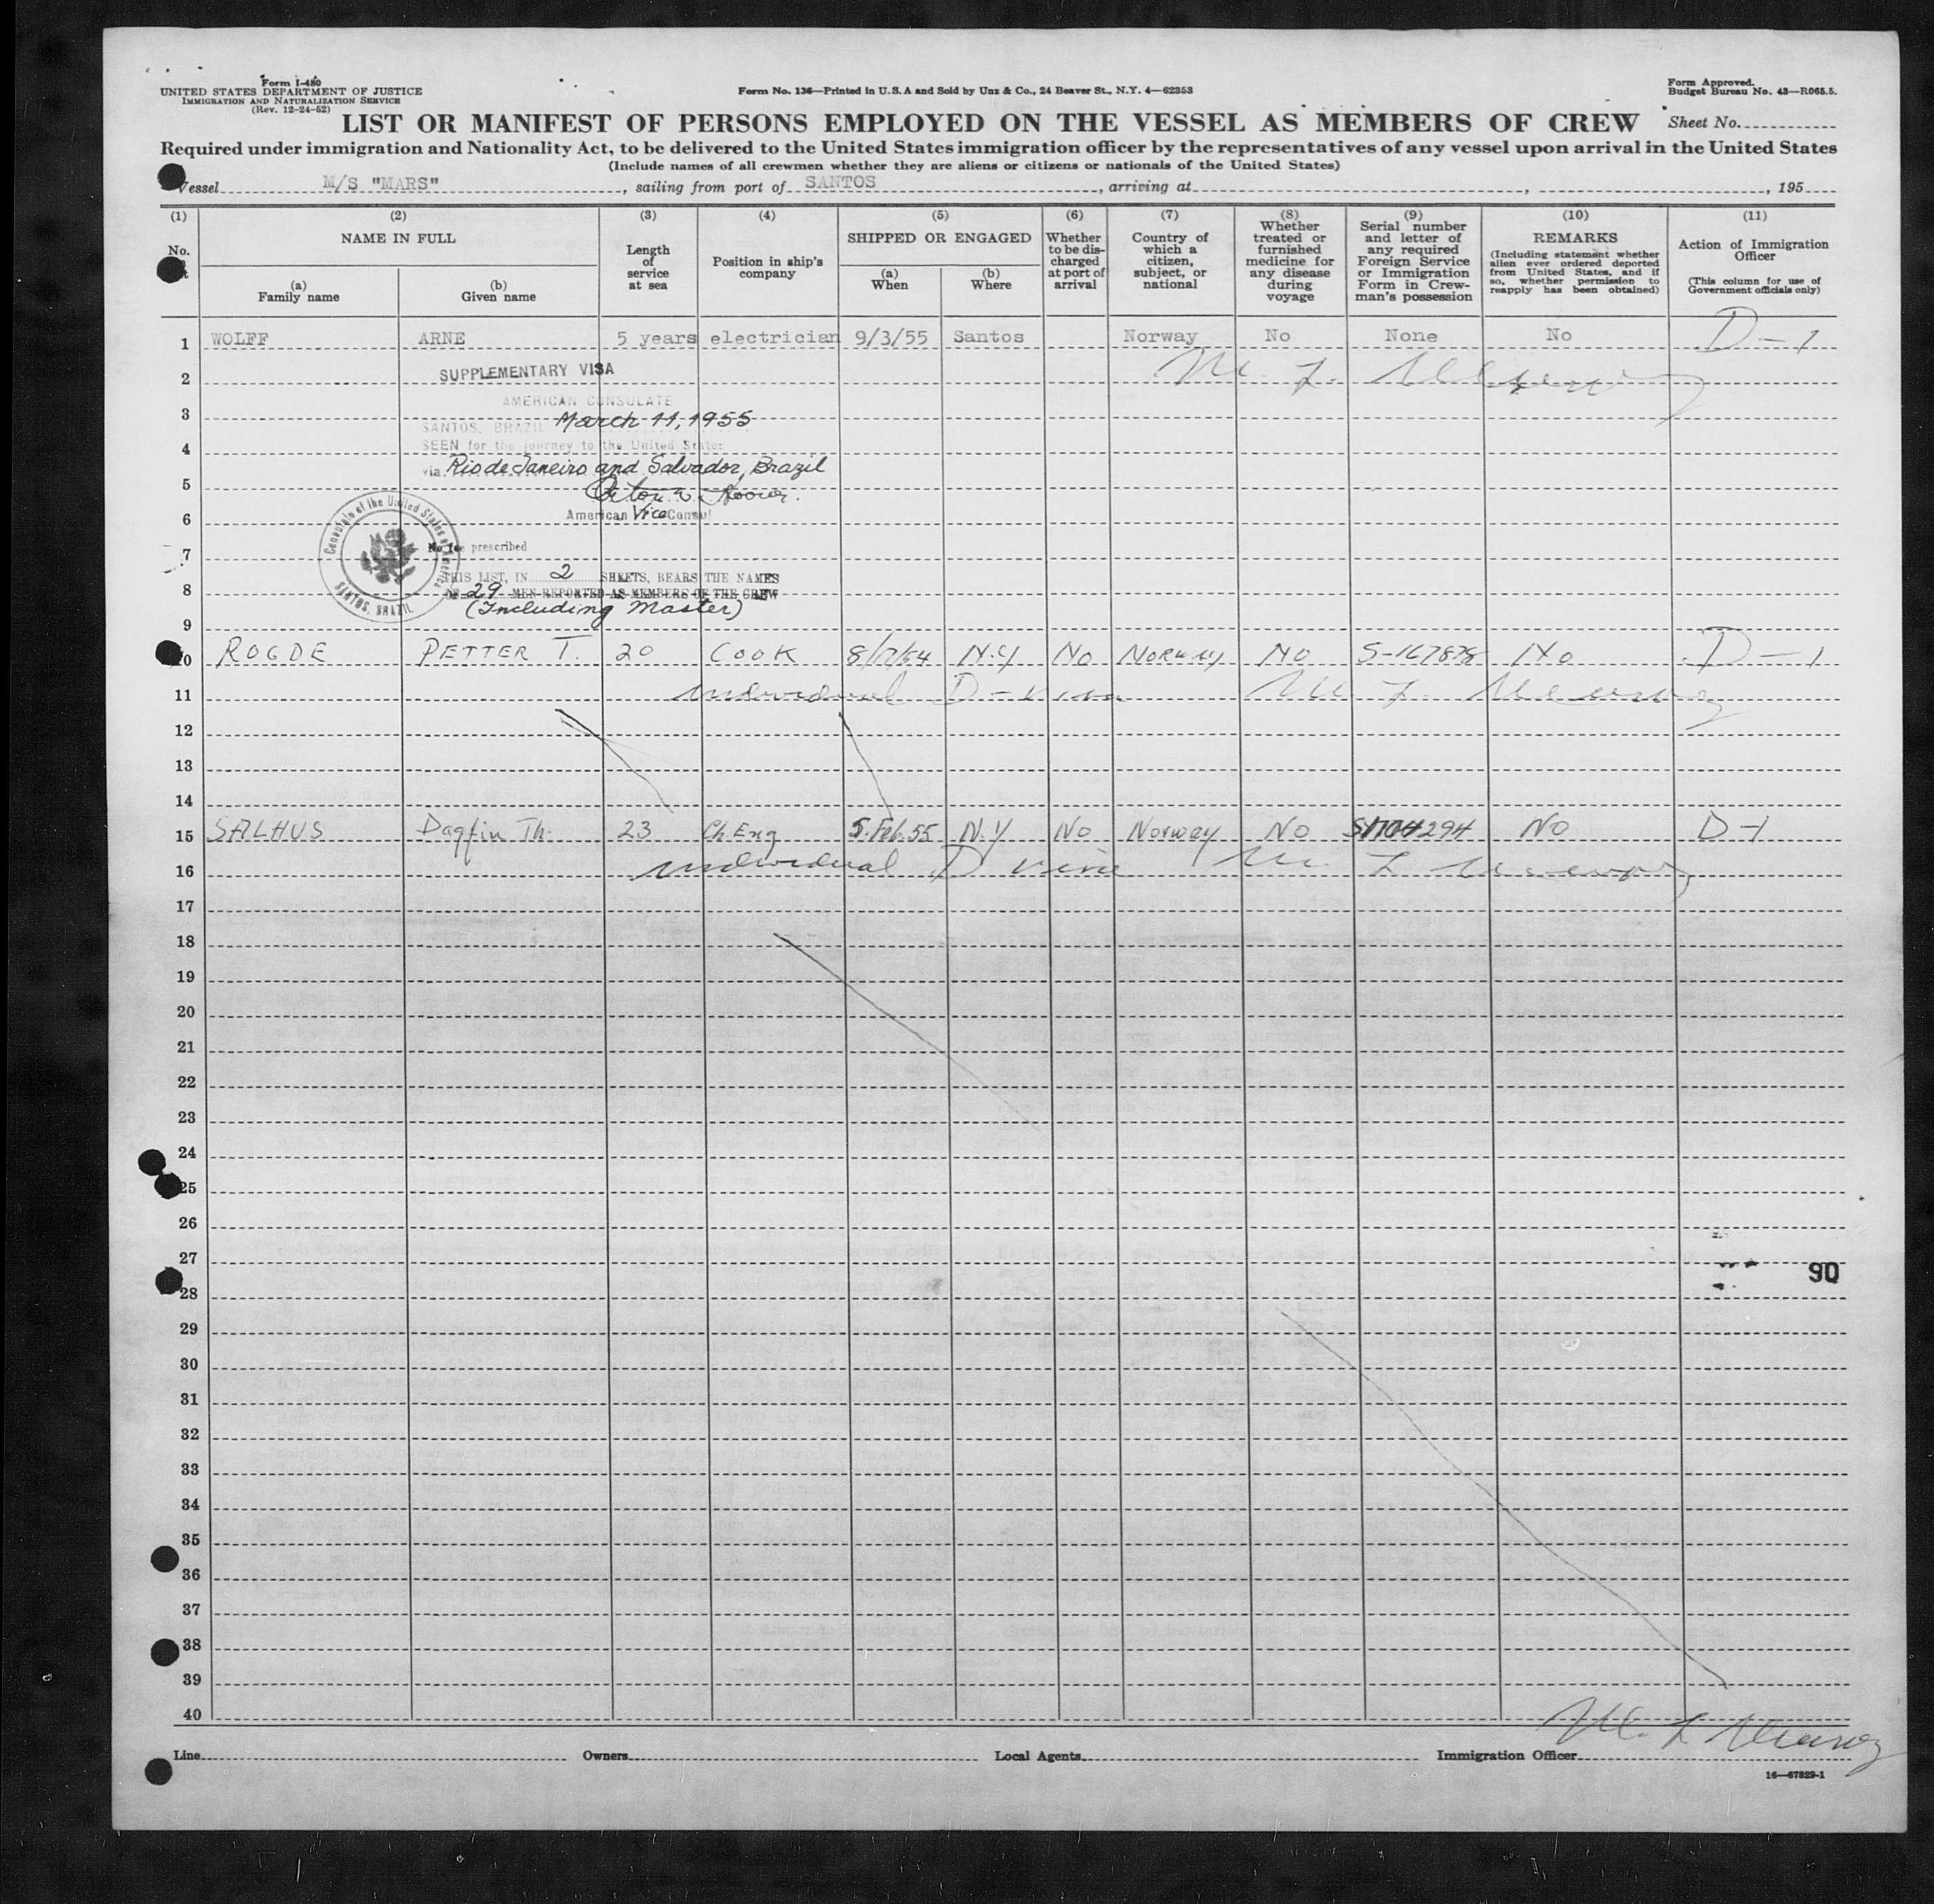 Form I-480
UNITED STATES DEPARTMENT OF JUSTICE
IMMIGRATION AND NATURALIZATION SERVICE
(Rev. 12-24-52)
Form No. 136—Printed in U.S.A and Sold by Unz & Co., 24 Beaver St., N.Y. 4—62353
Form Approved.
Budget Bureau No. 43—R065.5.
LIST OR MANIFEST OF PERSONS EMPLOYED ON THE VESSEL AS MEMBERS OF CREW
Sheet No.
Required under immigration and Nationality Act, to be delivered to the United States immigration officer by the representatives of any vessel upon arrival in the United States
(Include names of all crewmen whether they are aliens or citizens or nationals of the United States)
Vessel M/S "MARS", sailing from port of SANTOS, arriving at , , 195
(1) (2) (3) (4) (5) (6) (7) (8) (9) (10) (11)
No.
NAME IN FULL
(a) Family name
(b) Given name
Length of service at sea
Position in ship's company
SHIPPED OR ENGAGED
(a) When
(b) Where
Whether to be discharged at port of arrival
Country of which a citizen, subject, or national
Whether treated or furnished medicine for any disease during voyage
Serial number and letter of any required Foreign Service or Immigration Form in Crewman's possession
REMARKS
(Including statement whether alien ever ordered deported from United States, and if so, whether permission to reapply has been obtained)
Action of Immigration Officer
(This column for use of Government officials only)
1 WOLFF ARNE 5 years electrician 9/3/55 Santos Norway No None No D-1
2 SUPPLEMENTARY VISA
AMERICAN CONSULATE
3 SANTOS, BRAZIL March 11, 1955
4 SEEN for the journey to the United States
via Rio de Janeiro and Salvador, Brazil
5
6 American Vice Consul
Consulate of the United States of America
SANTOS, BRAZIL
7 No fee prescribed
THIS LIST, IN 2 SHEETS, BEARS THE NAMES
8 OF 29 MEN REPORTED AS MEMBERS OF THE CREW
(Including Master)
9
10 ROGDE PETTER T. 20 COOK 8/17/54 N.Y No NORWAY No S-167878 No D-1
11 individual D-visa
12
13
14
15 SALHUS Dagfin Th. 23 Ch Eng 5.Feb.55 N.Y No Norway No No D-1
16 individual D visa
17
18
19
20
21
22
23
24
25
26
27
90
28
29
30
31
32
33
34
35
36
37
38
39
40
Line Owners Local Agents Immigration Officer
16—67829-1